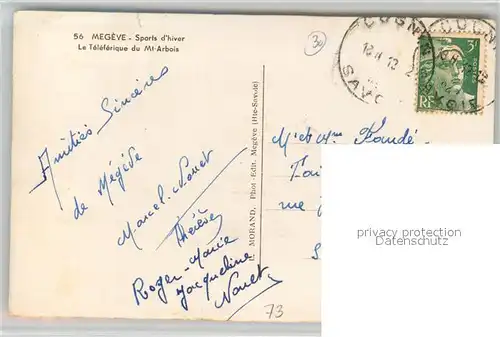 56 MEGÈVE - Sports d'hiver
Le Téléférique du Mt-Arbois
30
3F
RF
Amitiés Sincères
de Mégève
Marcel. Nouet
Thérèse
Roger-Marie
Jacqueline
Nouet
73
P. MORAND, Phot.-Edit. Megève (Hte-Savoie)
Mr et Mme
rue
privacy protection
Datenschutz